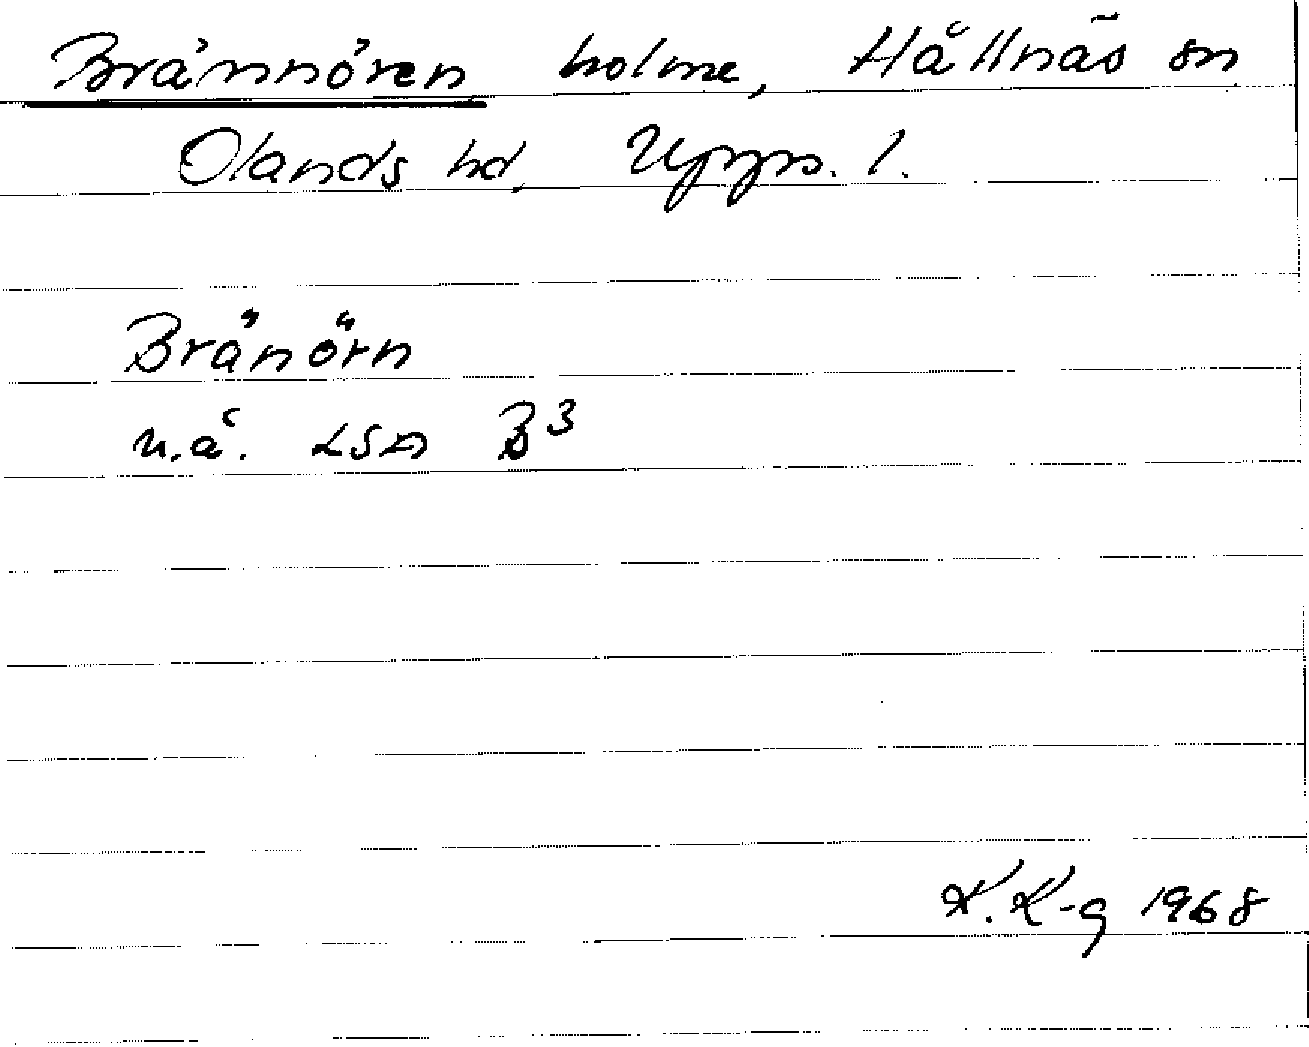 Brännören holme, Hållnäs sn
Olands hd, Upps. l.
Bränörn
n.å. LSA B3
K. K-g 1968